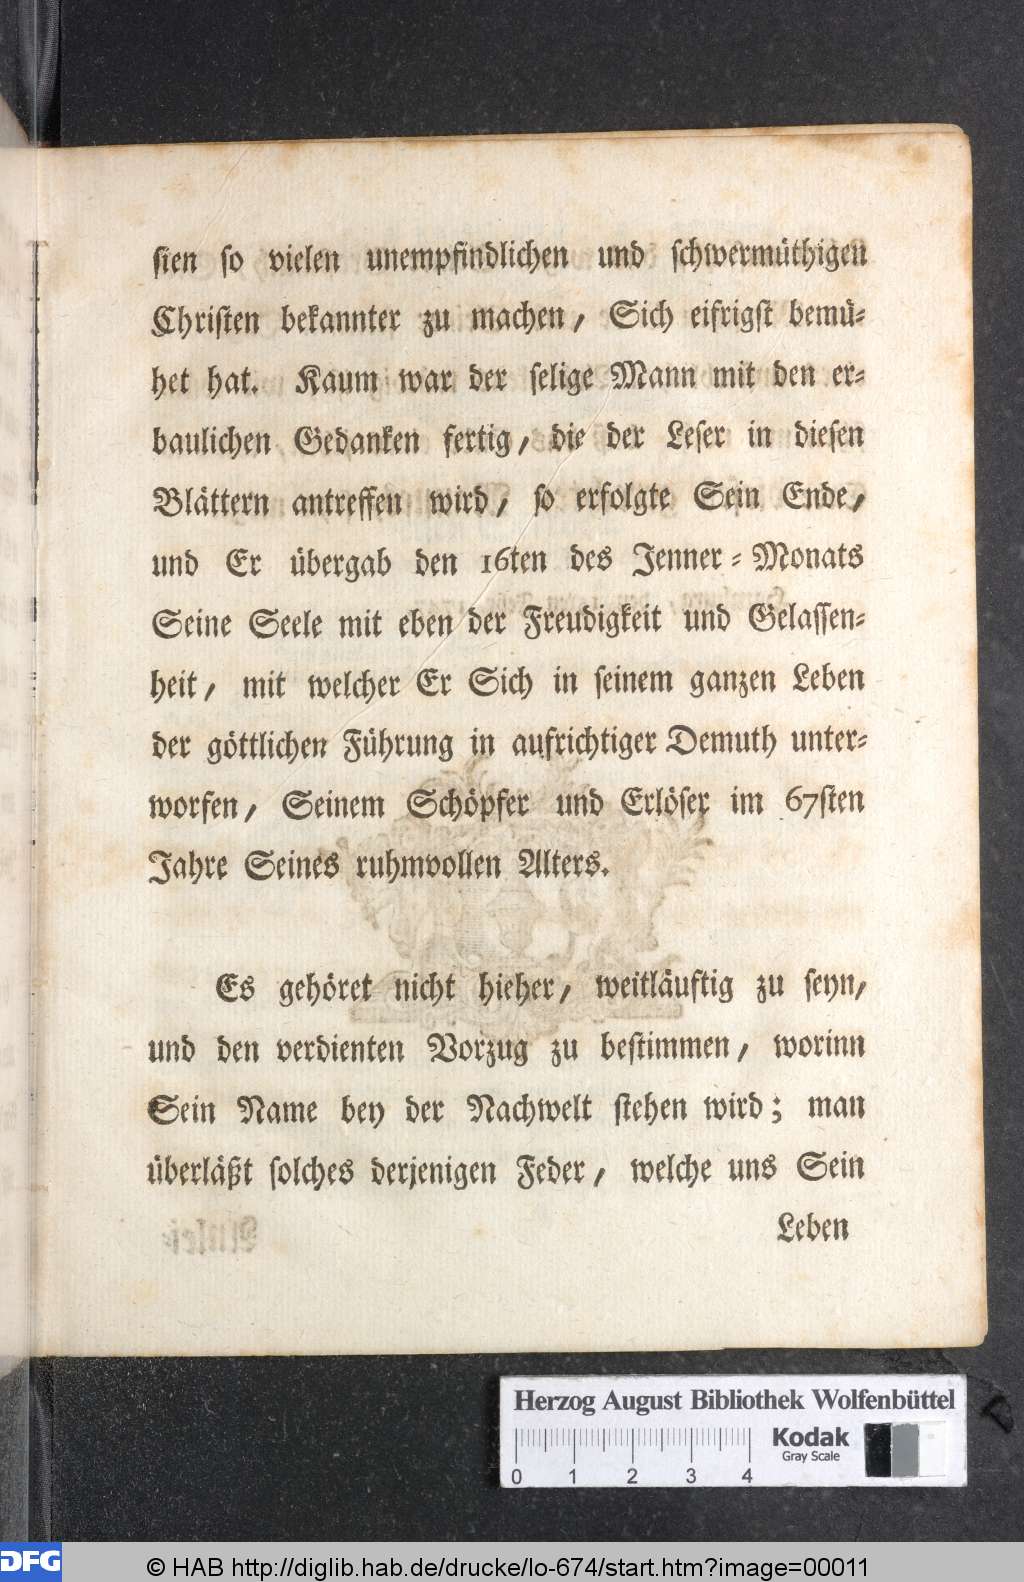 sien so vielen unempfindlichen und schwermüthigen
Christen bekannter zu machen, Sich eifrigst bemü-
het hat. Kaum war der selige Mann mit den er-
baulichen Gedanken fertig, die der Leser in diesen
Blättern antreffen wird, so erfolgte Sein Ende,
und Er übergab den 16ten des Jenner-Monats
Seine Seele mit eben der Freudigkeit und Gelassen-
heit, mit welcher Er Sich in seinem ganzen Leben
der göttlichen Führung in aufrichtiger Demuth unter-
worfen, Seinem Schöpfer und Erlöser im 67sten
Jahre Seines ruhmvollen Alters.
Es gehöret nicht hieher, weitläuftig zu seyn,
und den verdienten Vorzug zu bestimmen, worinn
Sein Name bey der Nachwelt stehen wird; man
überläßt solches derjenigen Feder, welche uns Sein
Leben
Herzog August Bibliothek Wolfenbüttel
Kodak
Gray Scale
0 1 2 3 4
DFG
© HAB http://diglib.hab.de/drucke/lo-674/start.htm?image=00011